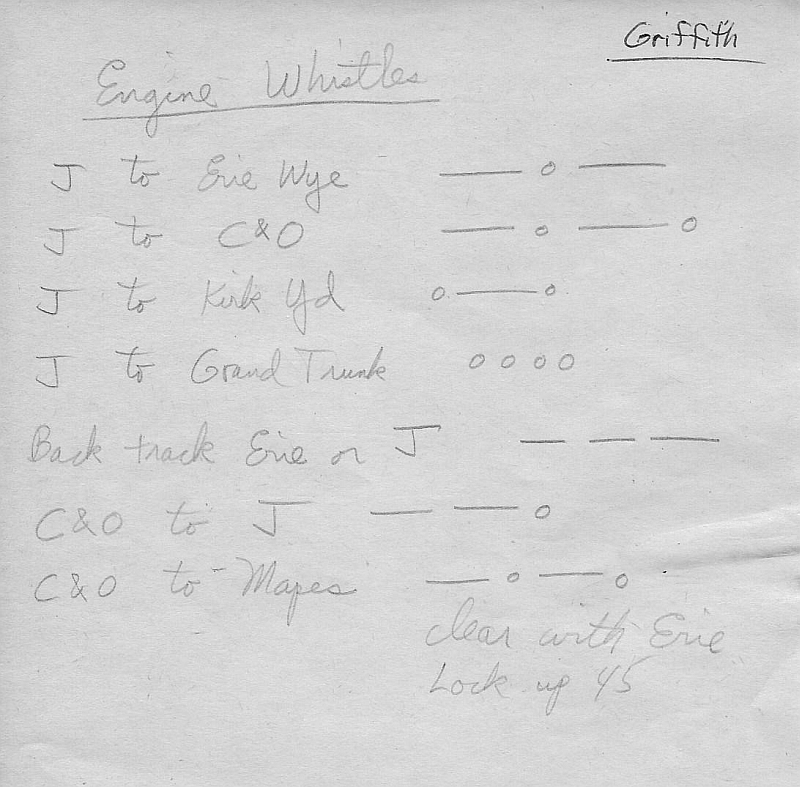 Griffith
Engine Whistles
J to Erie Wye — o —
J to C&O — o — o
J to Kirk Yd o — o
J to Grand Trunk o o o o
Back track Erie or J — — —
C&O to J — — o
C&O to Mapes — o — o
clear with Erie
Lock up 45